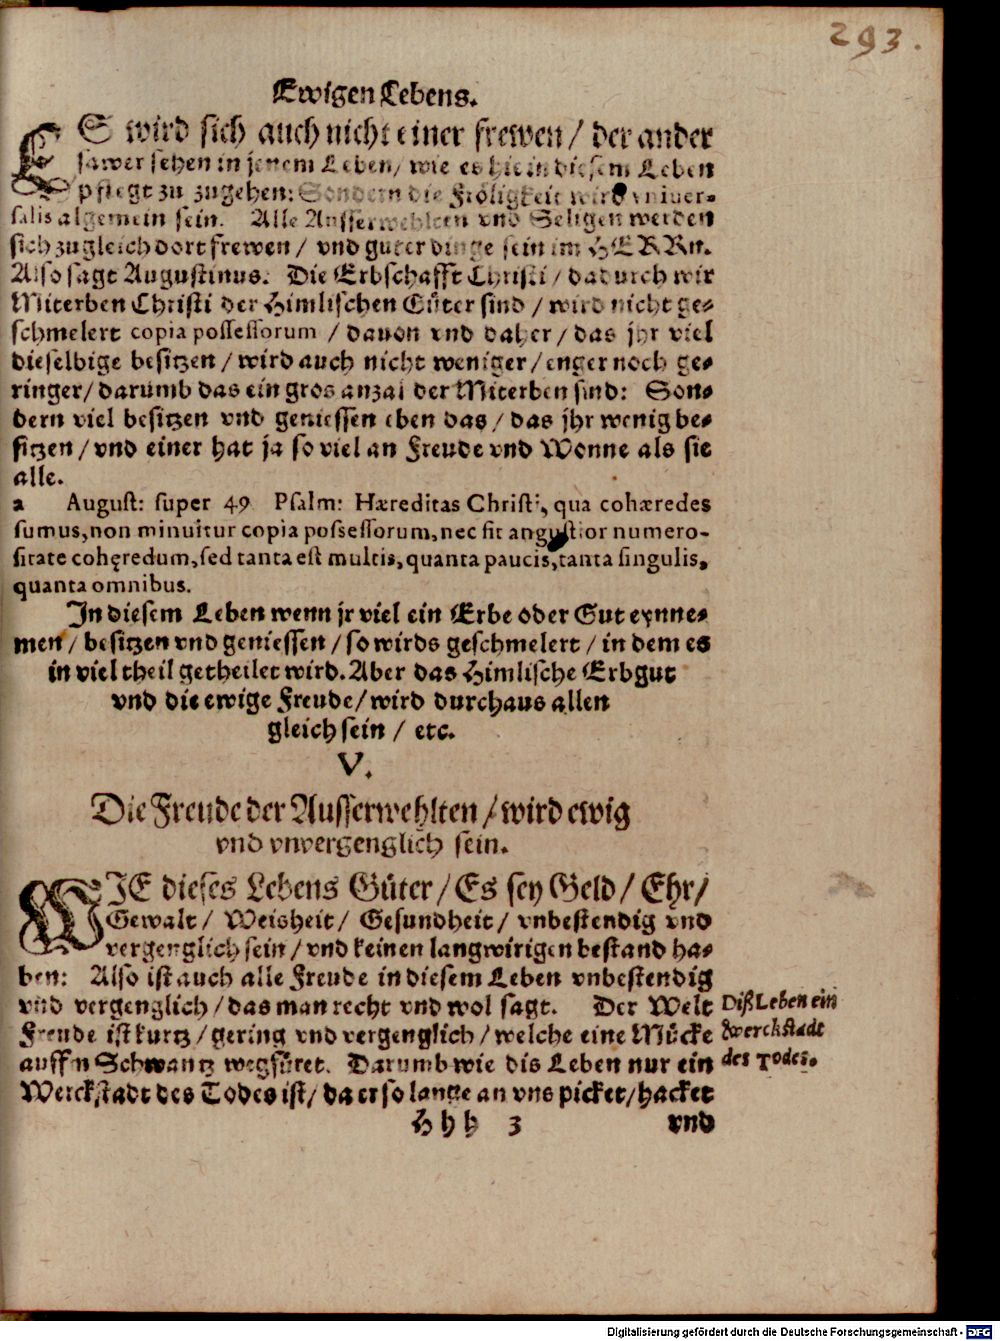 293.
Ewigen Lebens.
ES wird sich auch nicht einer frewen / der ander
sawer sehen in jenem Leben / wie es hie in diesem Leben
pflegt zu zugehen: Sondern die Fröligkeit wird vniver-
salis algemein sein. Alle Ausserwehleten vnd Seligen werden
sich zu gleich dort frewen / vnd guter dinge sein im HERRn.
Also sagt Augustinus. Die Erbschafft Christi / dadurch wir
Miterben Christi der Himlischen Güter sind / wird nicht ge-
schmelert copia possessorum / dauon vnd daher / das jhr viel
dieselbige besitzen / wird auch nicht weniger / enger noch ge-
ringer / darumb das ein gros anzal der Miterben sind: Son-
dern viel besitzen vnd geniessen eben das / das jhr wenig be-
sitzen / vnd einer hat ja so viel an Freude vnd Wonne als sie
alle.
a August: super 49 Psalm: Hæreditas Christi, qua cohæredes
sumus, non minuitur copia possessorum, nec fit angustior numero-
sitate cohęredum, sed tanta est multis, quanta paucis, tanta singulis,
quanta omnibus.
In diesem Leben wenn jr viel ein Erbe oder Gut eynne-
men / besitzen vnd geniessen / so wirds geschmelert / in dem es
in viel theil getheilet wird. Aber das Himlische Erbgut
vnd die ewige Freude / wird durchaus allen
gleich sein / etc.
V.
Die Freude der Ausserwehlten / wird ewig
vnd vnvergenglich sein.
WIE dieses Lebens Güter / Es sey Geld / Ehr /
Gewalt / Weisheit / Gesundheit / vnbestendig vnd
vergenglich sein / vnd keinen langwirigen bestand ha-
ben: Also ist auch alle Freude in diesem Leben vnbestendig
vnd vergenglich / das man recht vnd wol sagt. Der Welt
Freude ist kurtz / gering vnd vergenglich / welche eine Mücke
auffn Schwantz wegfüret. Darumb wie dis Leben nur ein
Werckstadt des Todes ist / da er so lange an vns picket / hacket
Diß Leben ein
Werckstadt
des Todes.
Hhh 3 vnd
Digitalisierung gefördert durch die Deutsche Forschungsgemeinschaft - DFG